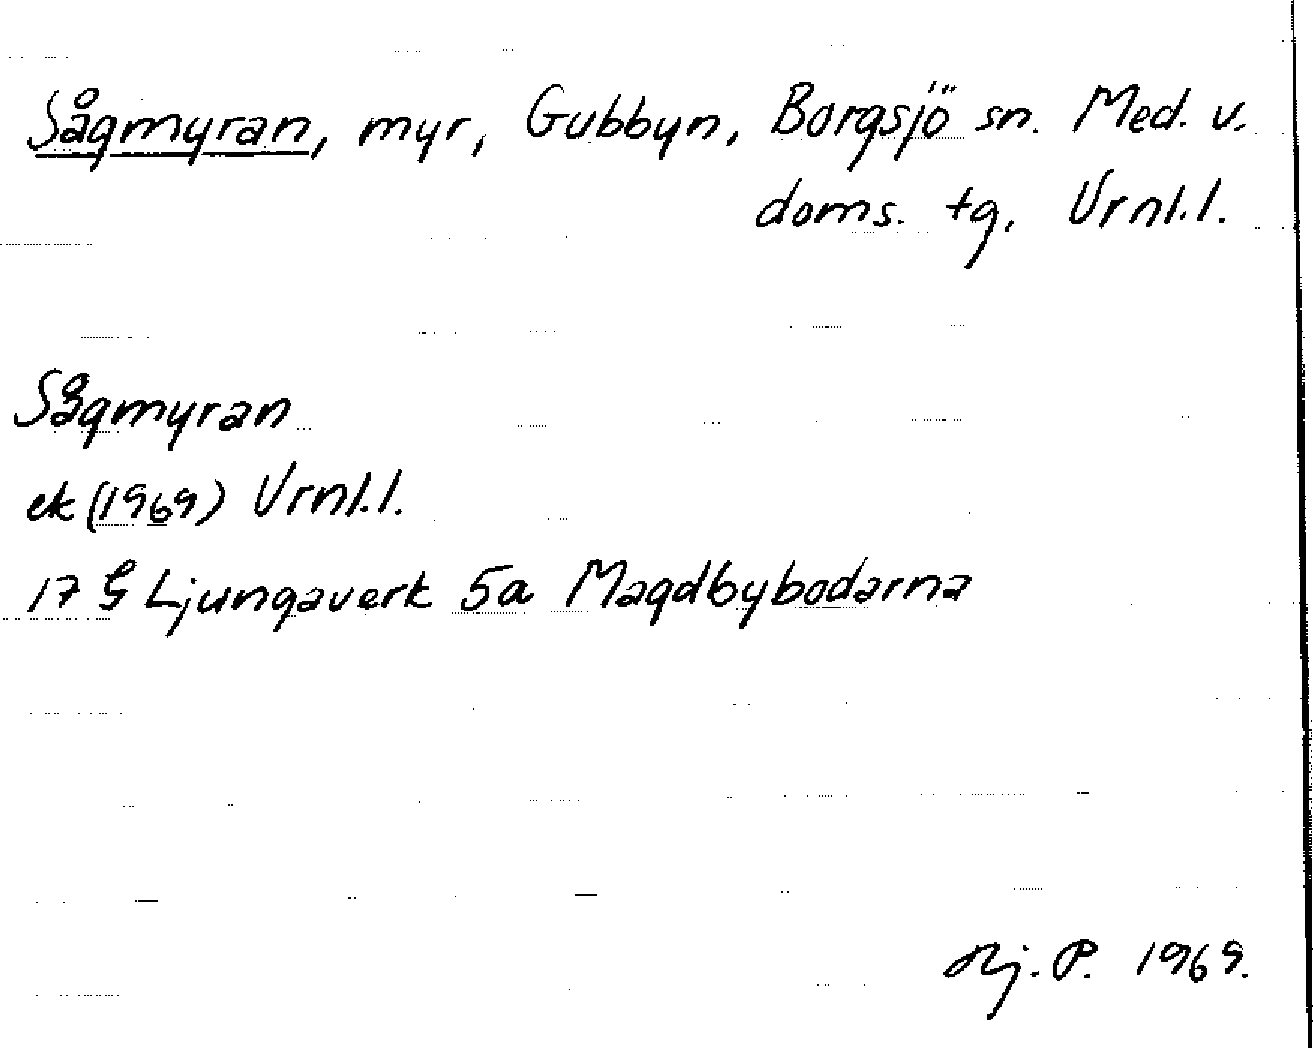 Sågmyran, myr, Gubbyn, Borgsjö sn. Med. v.
doms. tg. Vrnl.l.
Sågmyran
ek (1969) Vrnl.l.
17 G Ljungaverk 5a Magdbybodarna
Hj. P. 1969.